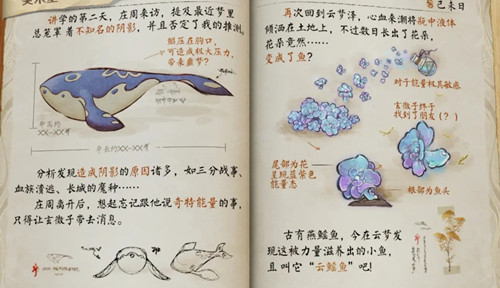 讲学的第二天，庄周来访，提及最近梦里
总笼罩着不知名的阴影，并且否定了我的推测。
鲲压在胸口，
可造成极大压力，
带来噩梦？
身高约
XX-XX尺
身长约XX-XX尺
分析发现造成阴影的原因诸多，如三分战事、
血族清逃、长城的魔种……
在庄周离开后，想起忘记跟他说奇特能量的事，
只得让玄微子带去消息。
己未日
再次回到云梦泽，心血来潮将瓶中液体
倾洒在土地上，不过数日长出了花朵，
花朵竟然……
变成了鱼？
对于能量极其敏感
玄微子终于
找到了朋友（？）
尾部为花
呈现蓝紫色
能量态
根部为鱼头
古有燕鳐鱼，今在云梦发
现这被力量滋养出的小鱼，
且叫它“云鳐鱼”吧！